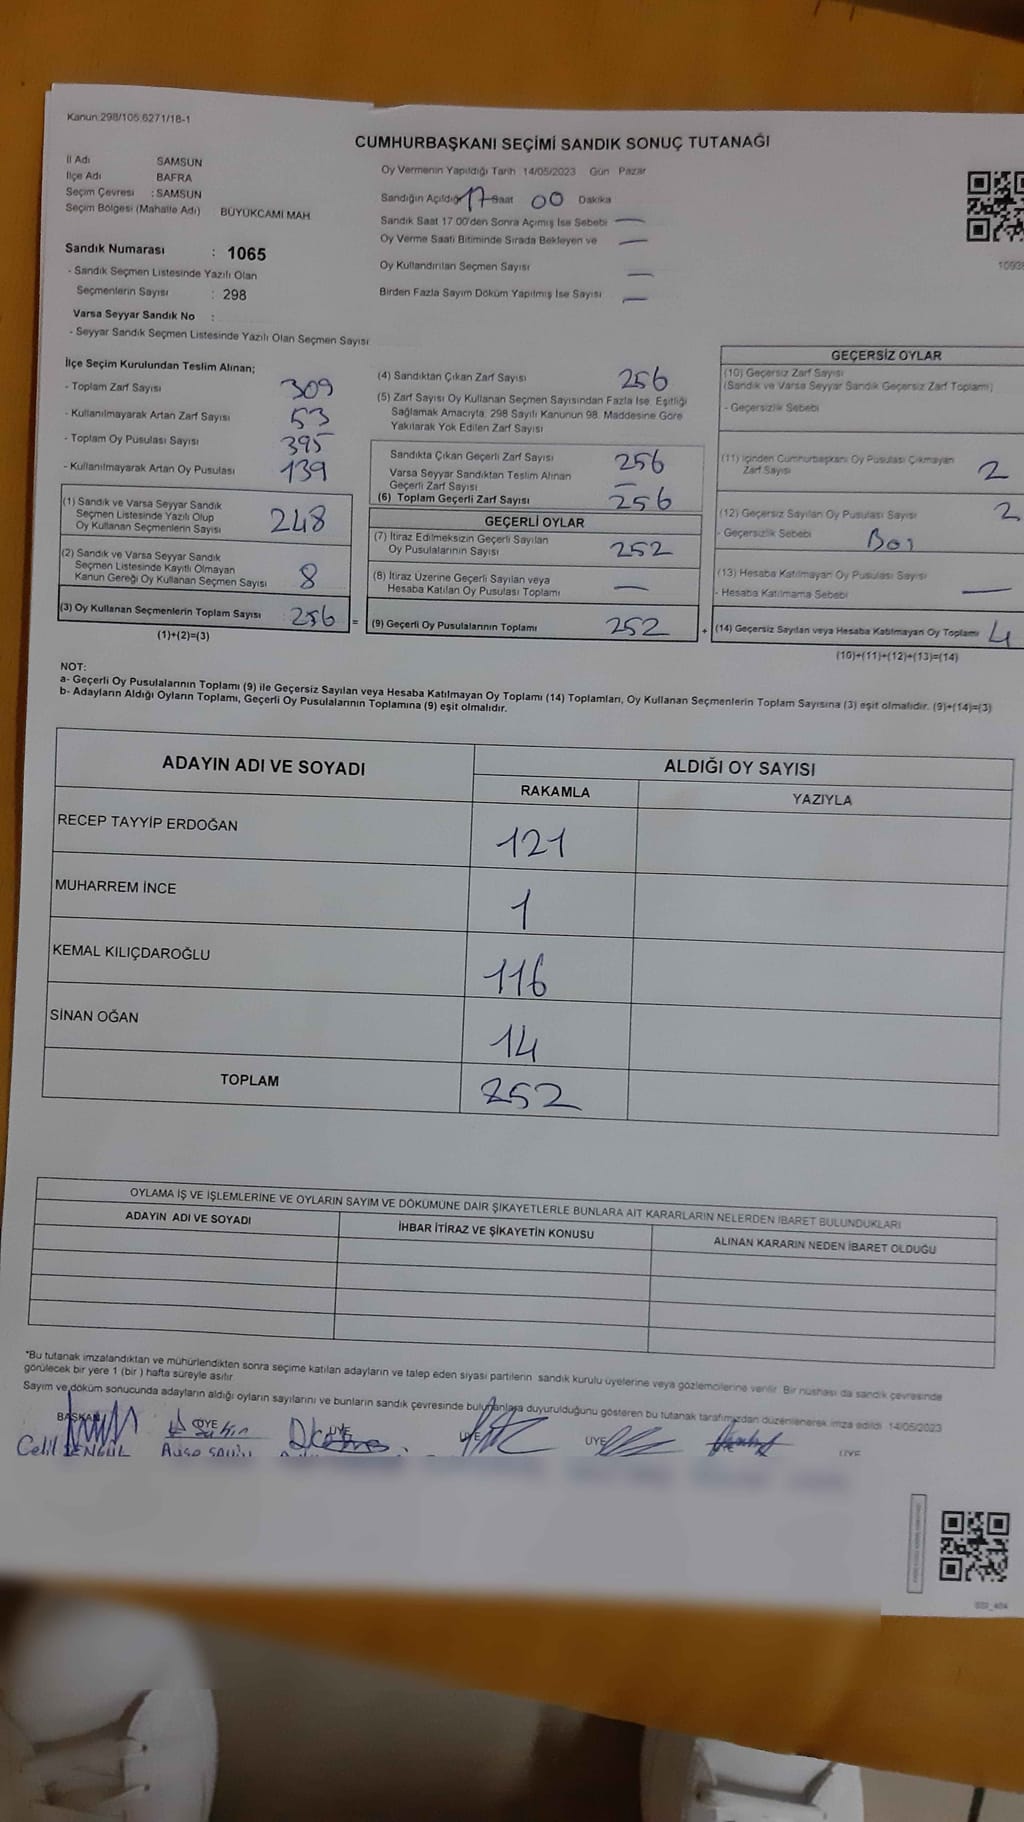 Kanun:298/105,6271/18-1
CUMHURBAŞKANI SEÇİMİ SANDIK SONUÇ TUTANAĞI
İl Adı SAMSUN
İlçe Adı BAFRA
Seçim Çevresi : SAMSUN
Seçim Bölgesi (Mahalle Adı) BÜYÜKCAMİ MAH
Sandık Numarası : 1065
- Sandık Seçmen Listesinde Yazılı Olan
Seçmenlerin Sayısı : 298
Varsa Seyyar Sandık No :
- Seyyar Sandık Seçmen Listesinde Yazılı Olan Seçmen Sayısı
Oy Vermenin Yapıldığı Tarih 14/05/2023 Gün Pazar
Sandığın Açıldığı 17 Saat 00 Dakika
Sandık Saat 17.00'den Sonra Açımış İse Sebebi —
Oy Verme Saati Bitiminde Sırada Bekleyen ve —
Oy Kullandırılan Seçmen Sayısı —
Birden Fazla Sayım Döküm Yapılmış İse Sayısı —
İlçe Seçim Kurulundan Teslim Alınan;
- Toplam Zarf Sayısı 309
- Kullanılmayarak Artan Zarf Sayısı 53
- Toplam Oy Pusulası Sayısı 395
- Kullanılmayarak Artan Oy Pusulası 139
(1) Sandık ve Varsa Seyyar Sandık
Seçmen Listesinde Yazılı Olup
Oy Kullanan Seçmenlerin Sayısı 248
(2) Sandık ve Varsa Seyyar Sandık
Seçmen Listesinde Kayıtlı Olmayan
Kanun Gereği Oy Kullanan Seçmen Sayısı 8
(3) Oy Kullanan Seçmenlerin Toplam Sayısı 256
(1)+(2)=(3)
=
(4) Sandıktan Çıkan Zarf Sayısı 256
(5) Zarf Sayısı Oy Kullanan Seçmen Sayısından Fazla İse, Eşitliği
Sağlamak Amacıyla; 298 Sayılı Kanunun 98. Maddesine Göre
Yakılarak Yok Edilen Zarf Sayısı
Sandıkta Çıkan Geçerli Zarf Sayısı 256
Varsa Seyyar Sandıktan Teslim Alınan
Geçerli Zarf Sayısı —
(6) Toplam Geçerli Zarf Sayısı 256
GEÇERLİ OYLAR
(7) İtiraz Edilmeksizin Geçerli Sayılan
Oy Pusulalarının Sayısı 252
(8) İtiraz Üzerine Geçerli Sayılan veya
Hesaba Katılan Oy Pusulası Toplamı —
(9) Geçerli Oy Pusulalarının Toplamı 252
+
GEÇERSİZ OYLAR
(10) Geçersiz Zarf Sayısı
(Sandık ve Varsa Seyyar Sandık Geçersiz Zarf Toplamı)
- Geçersizlik Sebebi
(11) İçinden Cumhurbaşkanı Oy Pusulası Çıkmayan
Zarf Sayısı 2
(12) Geçersiz Sayılan Oy Pusulası Sayısı 2
- Geçersizlik Sebebi Boş
(13) Hesaba Katılmayan Oy Pusulası Sayısı
- Hesaba Katılmama Sebebi —
(14) Geçersiz Sayılan veya Hesaba Katılmayan Oy Toplamı 4
(10)+(11)+(12)+(13)=(14)
NOT:
a- Geçerli Oy Pusulalarının Toplamı (9) ile Geçersiz Sayılan veya Hesaba Katılmayan Oy Toplamı (14) Toplamları, Oy Kullanan Seçmenlerin Toplam Sayısına (3) eşit olmalıdır. (9)+(14)=(3)
b- Adayların Aldığı Oyların Toplamı, Geçerli Oy Pusulalarının Toplamına (9) eşit olmalıdır.
ADAYIN ADI VE SOYADI
ALDIĞI OY SAYISI
RAKAMLA YAZIYLA
RECEP TAYYİP ERDOĞAN 121
MUHARREM İNCE 1
KEMAL KILIÇDAROĞLU 116
SİNAN OĞAN 14
TOPLAM 252
OYLAMA İŞ VE İŞLEMLERİNE VE OYLARIN SAYIM VE DÖKÜMÜNE DAİR ŞİKAYETLERLE BUNLARA AİT KARARLARIN NELERDEN İBARET BULUNDUKLARI
ADAYIN ADI VE SOYADI İHBAR İTİRAZ VE ŞİKAYETİN KONUSU ALINAN KARARIN NEDEN İBARET OLDUĞU
*Bu tutanak imzalandıktan ve mühürlendikten sonra seçime katılan adayların ve talep eden siyasi partilerin sandık kurulu üyelerine veya gözlemcilerine verilir. Bir nüshası da sandık çevresinde
görülecek bir yere 1 (bir ) hafta süreyle asılır.
Sayım ve döküm sonucunda adayların aldığı oyların sayılarını ve bunların sandık çevresinde bulunanlara duyurulduğunu gösteren bu tutanak tarafımızdan düzenlenerek imza edildi. 14/05/2023
BAŞKAN ÜYE ÜYE ÜYE ÜYE ÜYE
Celil ŞENGÜL